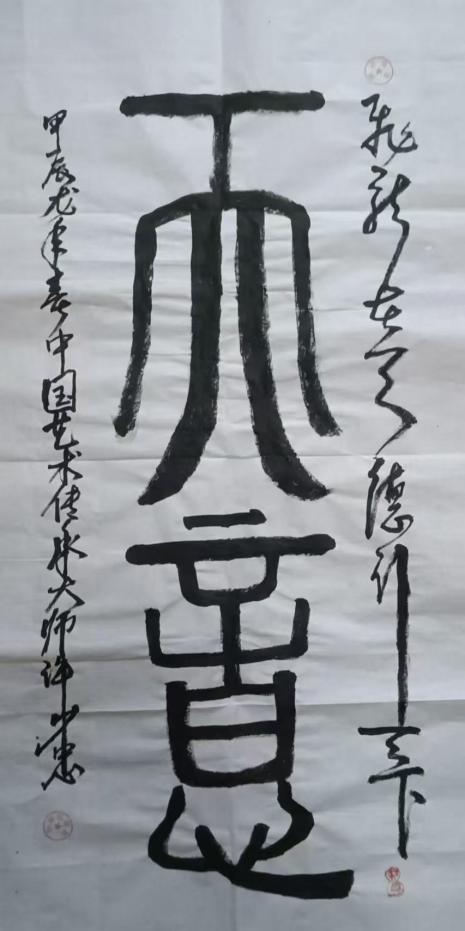 飛龙在天德行天下
意
甲辰龙年春中国艺术传承大师许